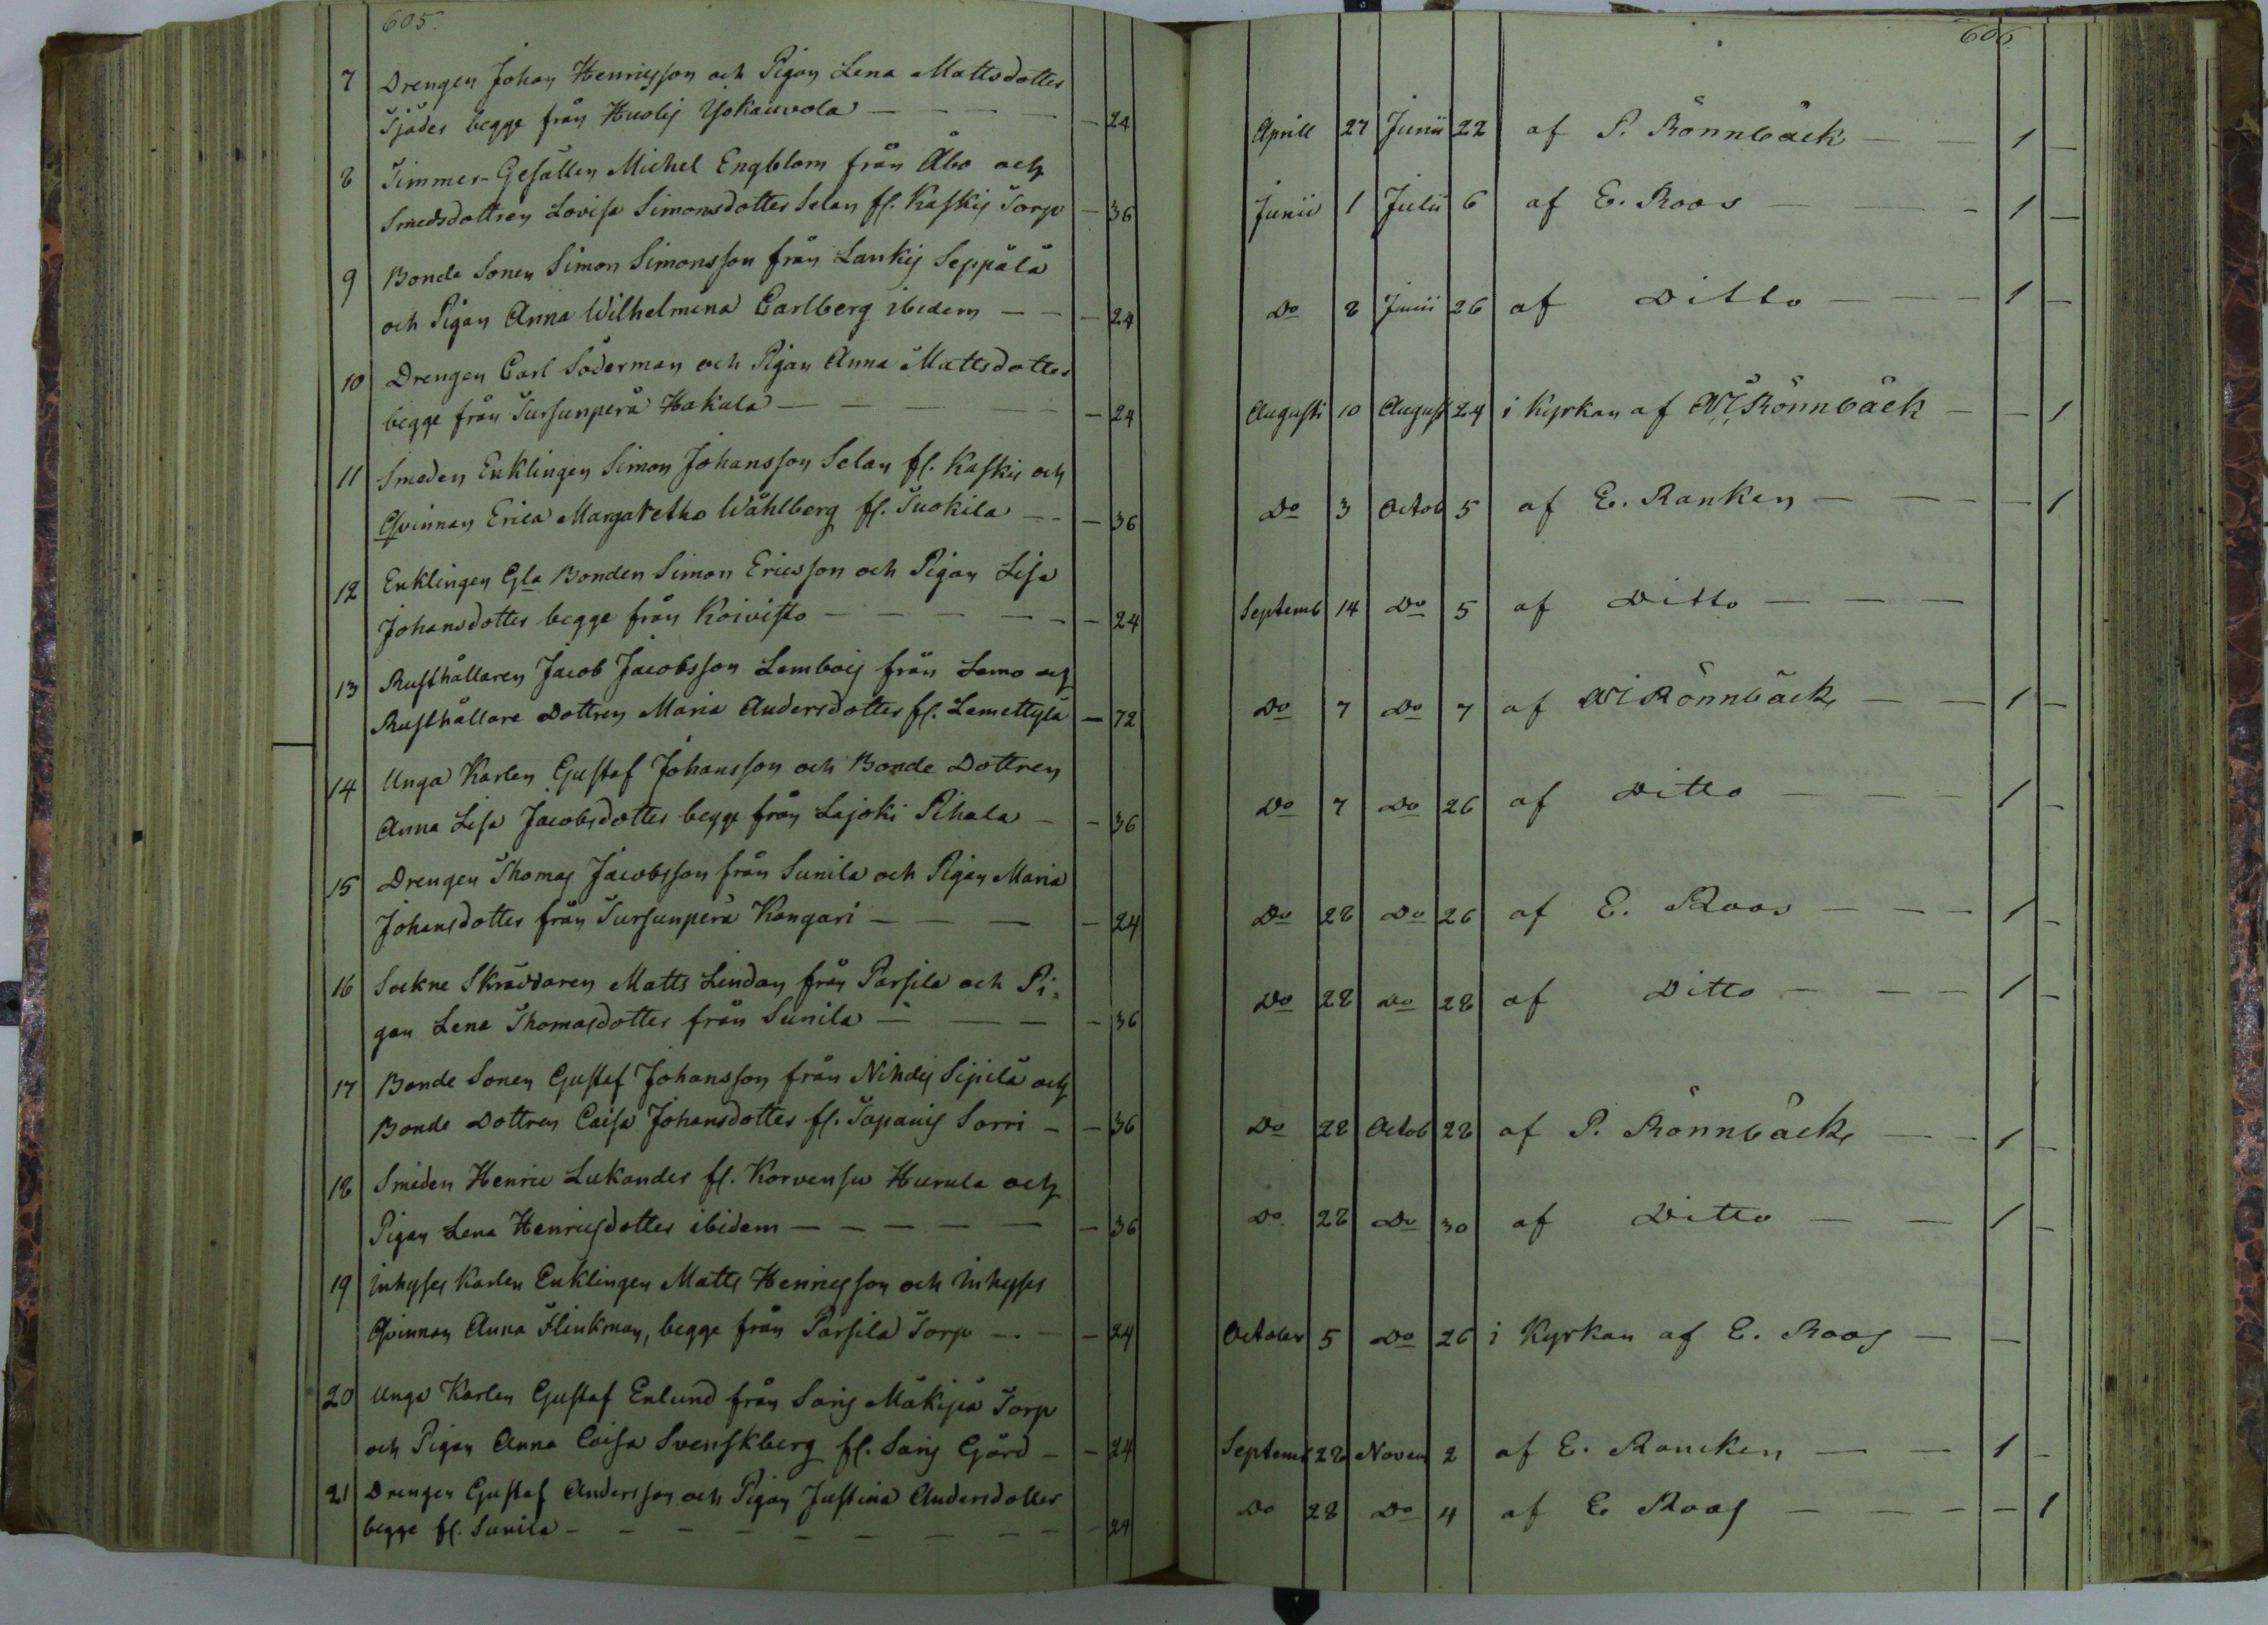 605.
7 Drengen Johan Henricsson och Pigan Lena Mattsdotter
Tjäder begge från Huolis Ylokauvola — — — 24
8 Timmer-Gesällen Michel Engblom från Åbo och
Smedsdottren Lovisa Simonsdotter Selan fl. Kaskis Torp — 36
9 Bonde Sonen Simon Simonsson från Lankis Seppälä
och Pigan Anna Wilhelmina Carlberg ibidem — — — 24
10 Drengen Carl Söderman och Pigan Anna Mattsdotter
begge från Tursunperä Hakula — — — — 24
11 Smeden Enklingen Simon Johansson Selan fl. Kaskis och
Qvinnan Erica Margaretha Wåhlberg fl. Tuokila — — 36
12 Enklingen Gla Bonden Simon Ericsson och Pigan Lisa
Johansdotter begge från Koivisto — — — — — 24
13 Rusthållaren Jacob Jacobsson Lembois från Lemo och
Rusthållare Dottren Maria Andersdotter fl. Lemettylä — 72
14 Unga Karlen Gustaf Johansson och Bonde Dottren
Anna Lisa Jacobsdotter begge från Lajoki Pihala — — 36
15 Drengen Thomas Jacobsson från Sunila och Pigan Maria
Johansdotter från Tursunperä Kangari — — — — 24
16 Sockne Skräddaren Matts Lindan från Parsila och Pi-
gan Lena Thomasdotter från Sunila — — — — 36
17 Bonde Sonen Gustaf Johansson från Nihdis Sipilä och
Bonde Dottren Caisa Johansdotter fl. Tapanis Sorri — — 36
18 Smeden Henric Lukander fl. Korvensu Hurula och
Pigan Lena Henricsdotter ibidem — — — — — — 36
19 Inhyses Karlen Enklingen Matts Henricsson och Inhyses
Qvinnan Anna Flinkman, begge från Parsila Torp — — — 24
20 Unga Karlen Gustaf Enlund från Saris Mäkipä Torp
och Pigan Anna Caisa Svenskberg fl. Saris Gård — — 24
21 Drengen Gustaf Andersson och Pigan Justina Andersdotter
begge fl. Sunila — — — — — — — — — 24
606
Aprill 27 Junii 22 af P. Rönnbäck — — 1 —
Junii 1 Julii 6 af E. Roos — — — 1 —
Do 8 Junii 26 af Ditto — — — 1 —
Augusti 10 August 24 i Kyrkan af Rönnbäck — — 1
Do 3 Octob 5 af E. Ranken — — — — 1
Septemb 14 Do 5 af Ditto — — —
Do 7 Do 7 af Rönnbäck — — 1 —
Do 7 Do 26 af Ditto — — — 1 —
Do 28 Do 26 af E. Roos — — — 1 —
Do 28 Do 28 af Ditto — — — 1 —
Do 28 Octob 28 af P. Rönnbäck — — 1 —
Do. 28 Do 30 af Ditto — — 1 —
October 5 Do 26 i Kyrkan af E. Roos — —
Septemb 28 Novem 2 af E. Rancken — — 1 —
Do 28 Do 4 af E Roos — — — — 1